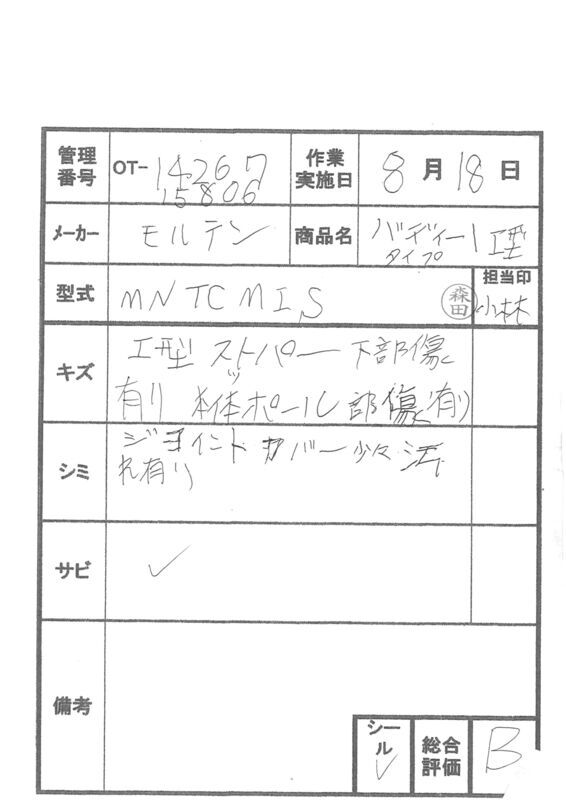 管理番号 OT-14267 作業実施日 8月18日
15806
メーカー モルテン 商品名 バディー I型
タイプ
型式 MNTCMIS 森田 担当印 小林
キズ I型 ストッパー 下部傷
有り 本体ポール部傷有り
シミ ジョイントカバー少々汚
れ有り
サビ ✓
備考
シール ✓ 総合評価 B